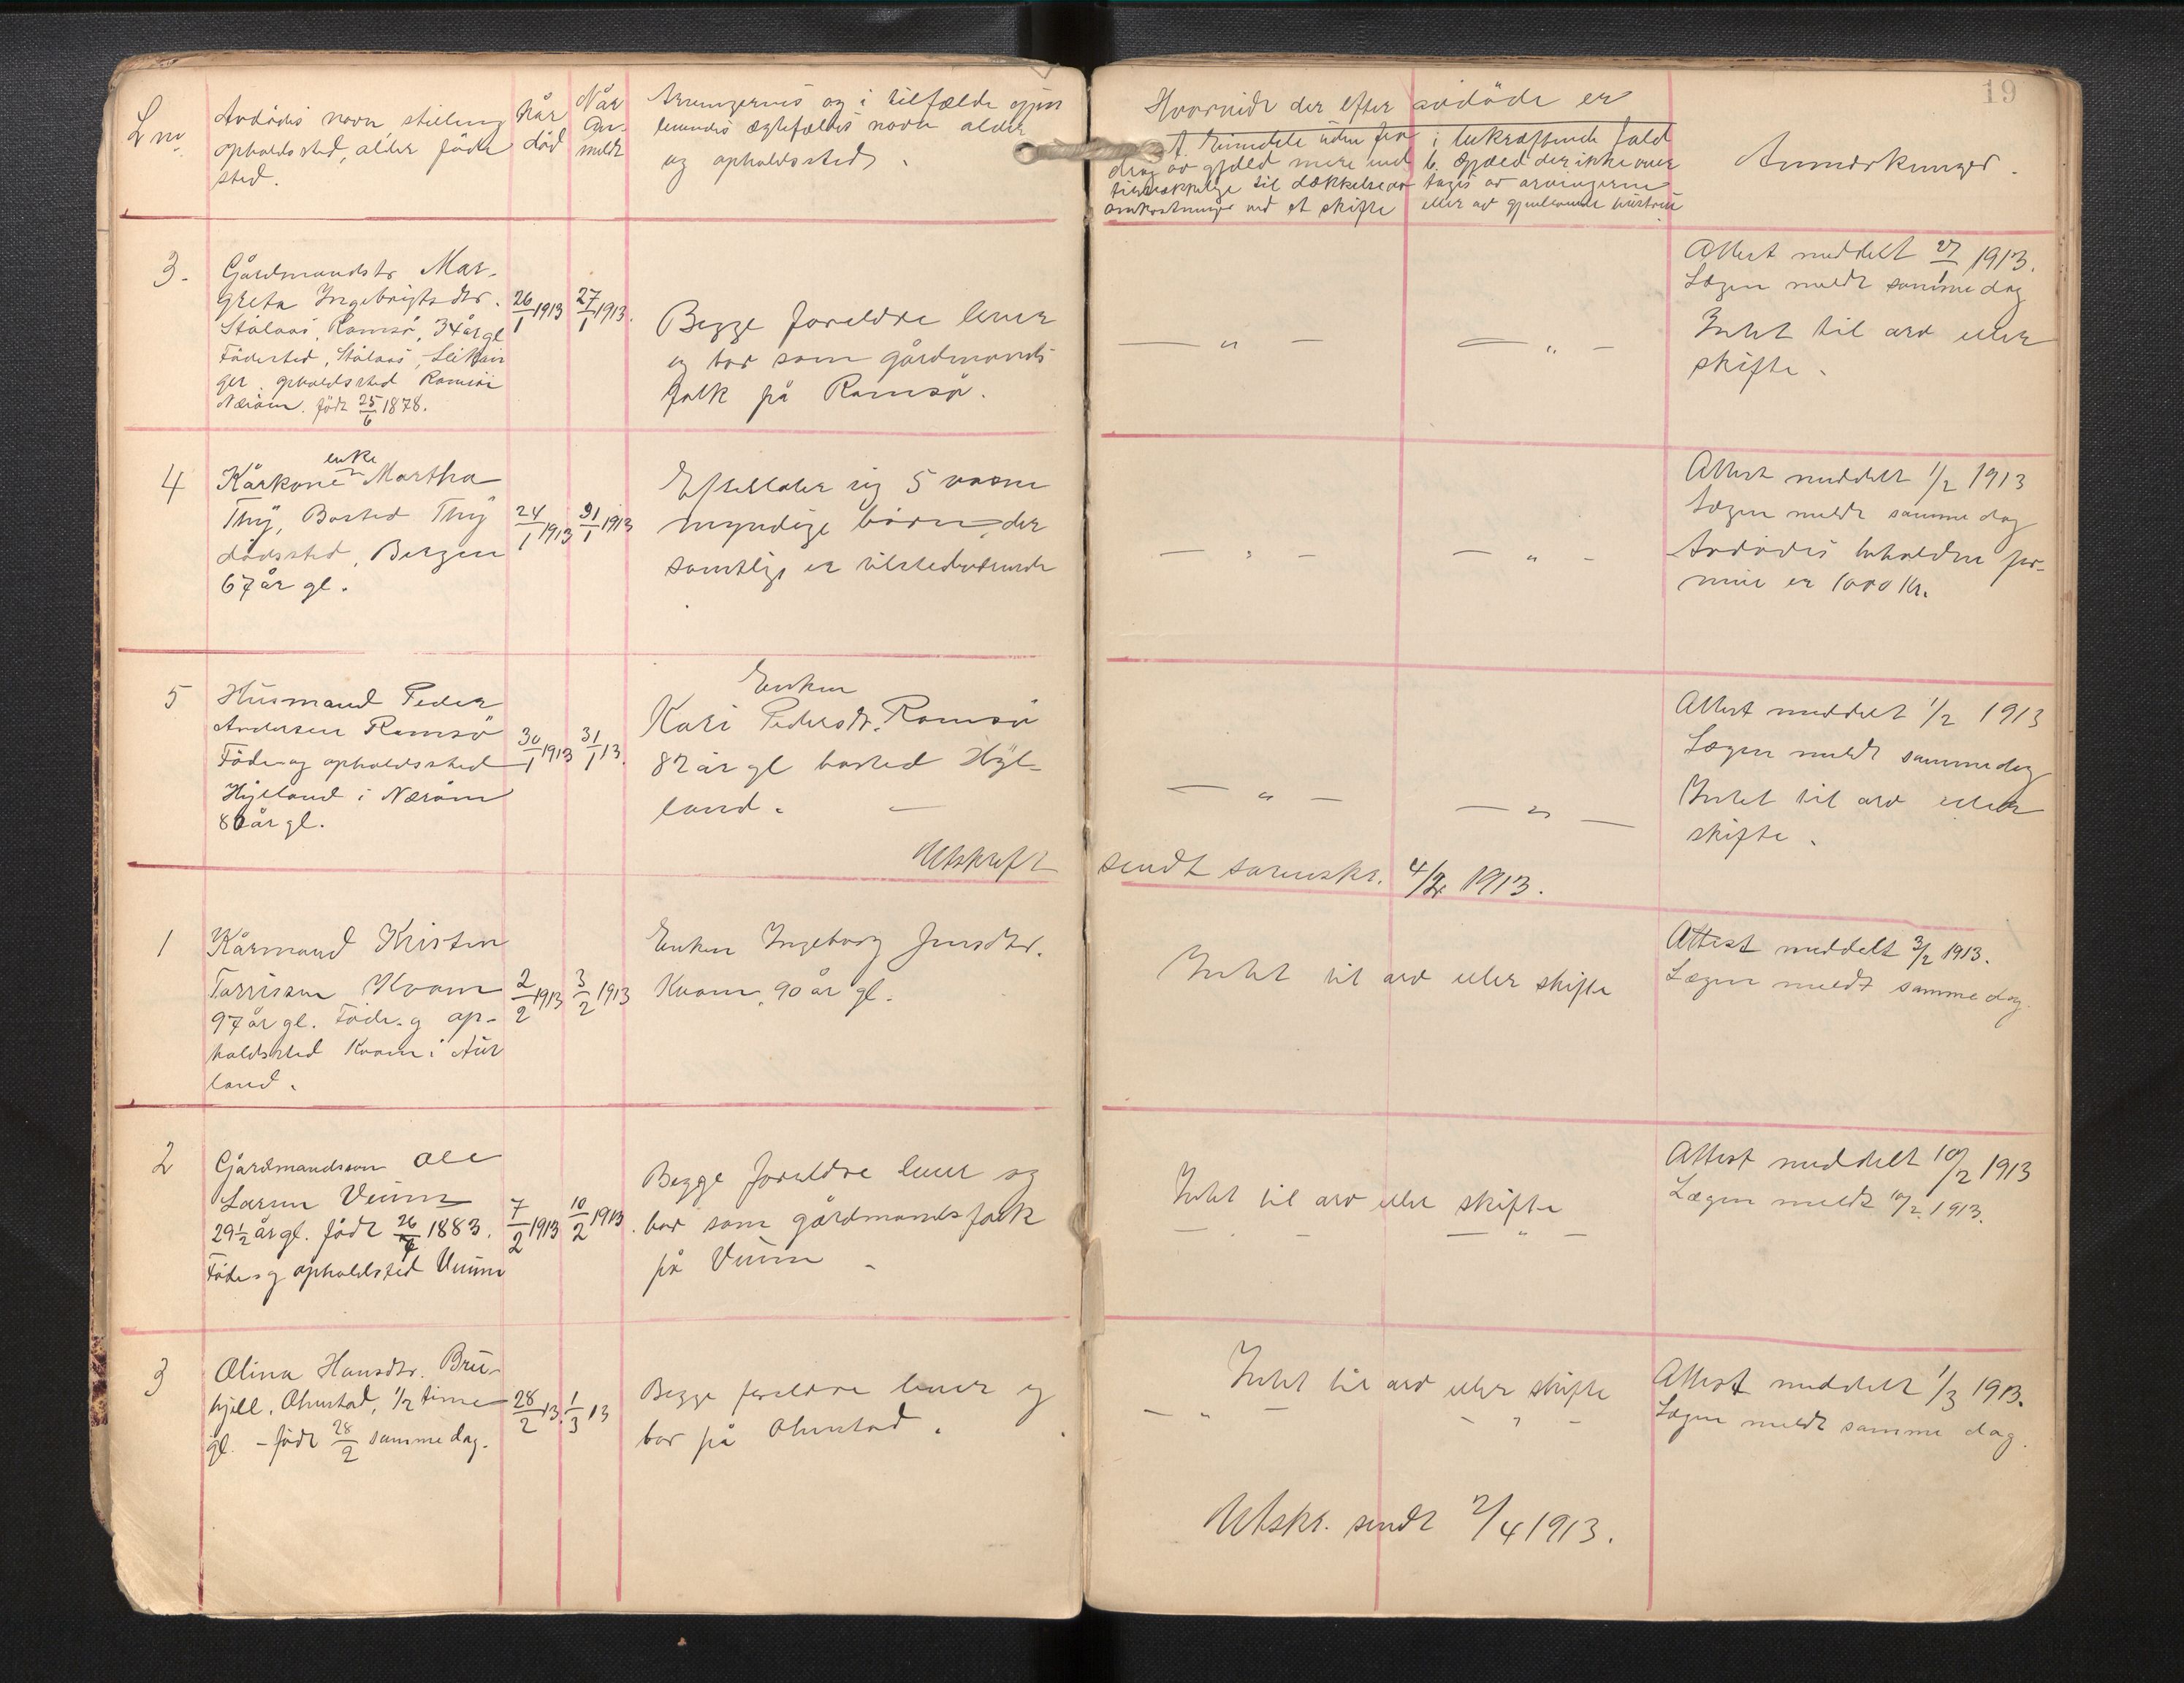 L nr.
Avdödes navn stilling
opholdssted, alder föde
sted.
Når
död
Når
an-
meldt
Arvingernes og i tilfælde gjen
levendes ægtefælles navn alder
og opholdssted.
Hvorvidt der efter avdöde er
19
A. Eiendele uden fra
drag av gjæld mere end
tilstrækkelige til dækkelse av
omkostninger ved et skifte
i bekræftende fald
b. Gjæld der ikke over
tages av arvingerne
eller av gjenlevende hustru
Anmerkninger.
3.
Gårdmandsdtr. Mar-
greta Ingebrigtsdtr.
Stålaas, Ramsö, 34 år gl
Födested, Stålaas, Leikan
ger. opholdssted Ramsöi
Næröen. født 25/6 1878.
26/1 1913
27/1 1913.
Begge foreldre lever
og bor som gårdmands
folk på Ramsö.
— " —
— " —
Attest meddelt 27/1 1913.
Lægen meldt samme dag
Intet til arv eller
skifte.
4
enke
Kårkone Martha
Thij, Bosted Thij
dödssted, Bergen
67 år gl.
24/1 1913
31/1 1913
Efterlater sig 5 voxne
myndige börn, der
samtlige er tilstedeværende
— " —
— " —
Attest meddelt 1/2 1913
Lægen meldt samme dag
Avdödes beholdne for-
mue er 1000 Kr.
5
Husmand Peder
Andersen Ramsö
Föde- og opholdssted
Hijlland i Næröen
80 år gl.
30/1 1913
31/1 13.
Enken
Kari Pedersdr. Ramsö
82 år gl bosted Hijl-
land. —
— " —
— " —
Attest meddelt 1/2 1913
Lægen meldt samme dag
Intet til arv eller
skifte.
Utskrift sendt sorenskr. 4/2 1913.
1
Kårmand Kristen
Torrissen Kvam
97 år gl. Föde- og op-
holdssted Kvam i Aur
land.
2/2 1913
3/2 1913
Enken Ingeborg Jensdtr.
Kvam, 90 år gl.
Intet til arv eller skifte
Attest meddelt 3/2 1913.
Lægen meldt samme dag.
2
Gårdmandssön Ole
Larsen Vinm
29 1/2 år gl. født 26/7 1883.
Föde og opholdsted Vinm
7/2 1913
10/2 1913.
Begge foreldre lever og
bor som gårdmandsfolk
på Vinm
Intet til arv eller skifte
— " —
— " —
Attest meddelt 10/2 1913
Lægen meldt 10/2 1913.
3
Olina Hansdtr. Bru-
hjell, Ohnstad, 1/2 time
gl. - født 28/2 samme dag.
28/2 13.
1/3 13
Begge foreldre lever og
bor på Ohnstad.
Intet til arv eller skifte
— " —
— " —
Attest meddelt 1/3 1913.
Lægen meldt samme dag.
Utskr. sendt 2/4 1913.